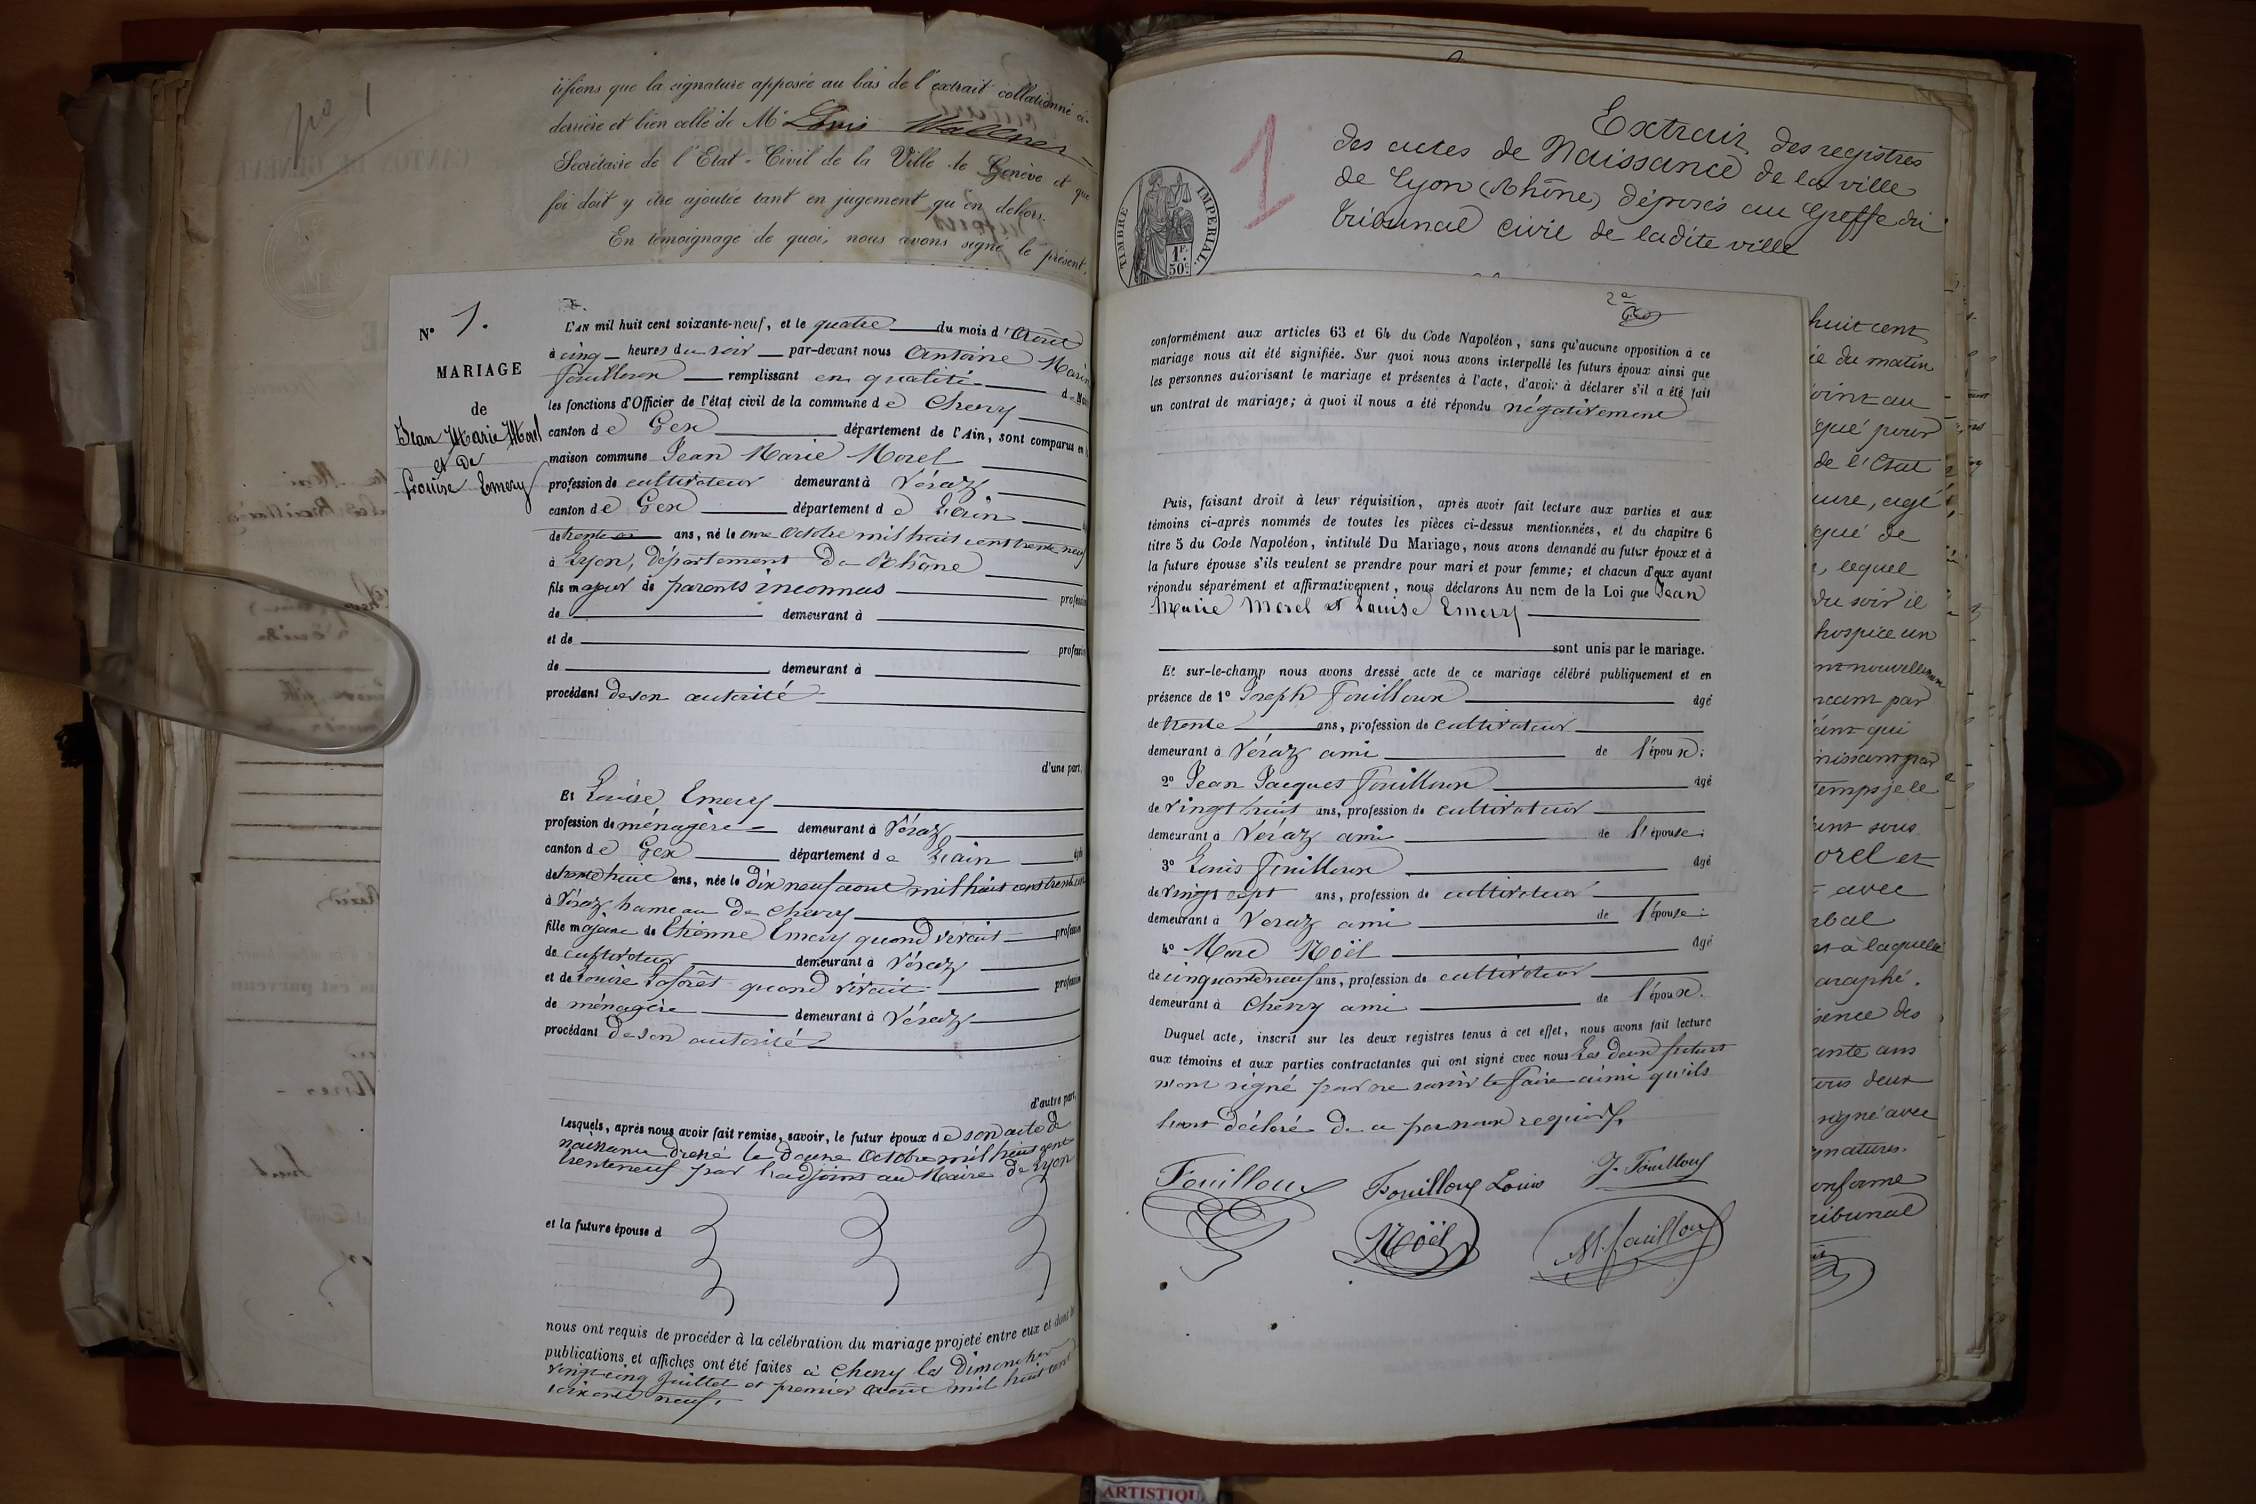 tifions que la signature apposée au bas de l'extrait collationné ci-
derrière et bien celle de Mr Louis
Secrétaire de l'Etat-Civil de la Ville de Genève et que
foi doit y être ajoutée tant en jugement qu'en dehors.
En témoignage de quoi, nous avons signé le présent,
N° 1.
MARIAGE
de
Jean Marie Morel
et de
Louise Emery
L'AN mil huit cent soixante-neuf, et le quatre du mois d'Août
à cinq heures du soir par-devant nous Antoine Marin
Fouilloux remplissant en qualité de Maire
les fonctions d'Officier de l'état civil de la commune de Chevry
canton de Gex département de l'Ain, sont comparus en la
maison commune Jean Marie Morel
profession de cultivateur demeurant à Véraz
canton de Gex département de l'ain
de trente ans, né le onze Octobre mil huit cent trente neuf
à Lyon, département du Rhône
fils majeur de parents inconnus profession
de demeurant à
et de profession
de demeurant à
procédant de son autorité
d'une part,
Et Louise Emery
profession de ménagère demeurant à Véraz
canton de Gex département de l'ain âgée
de trente huit ans, née le dix neuf aout mil huit cent trente
à Véraz hameau de Chevry
fille majeure de Etienne Emery quand vivait profession
de cultivateur demeurant à Véraz
et de Louise Laforêt quand vivait profession
de ménagère demeurant à Véraz
procédant de son autorité
d'autre part,
Lesquels, après nous avoir fait remise, savoir, le futur époux de son acte de
naissance dressé le douze Octobre mil huit cent
trente neuf par l'adjoint au Maire de Lyon
et la future épouse d
nous ont requis de procéder à la célébration du mariage projeté entre eux et dont les
publications et affiches ont été faites à Chevry les Dimanches
vingt cinq Juillet et premier Août mil huit cent
soixante neuf.
Extrait des registres
des actes de Naissance de la ville
de Lyon (Rhône) déposés au Greffe du
tribunal civil de ladite ville
1
TIMBRE IMPERIAL
1F.
50c
2e
conformément aux articles 63 et 64 du Code Napoléon, sans qu'aucune opposition à ce
mariage nous ait été signifiée. Sur quoi nous avons interpellé les futurs époux ainsi que
les personnes autorisant le mariage et présentes à l'acte, d'avoir à déclarer s'il a été fait
un contrat de mariage; à quoi il nous a été répondu négativement
Puis, faisant droit à leur réquisition, après avoir fait lecture aux parties et aux
témoins ci-après nommés de toutes les pièces ci-dessus mentionnées, et du chapitre 6
titre 5 du Code Napoléon, intitulé Du Mariage, nous avons demandé au futur époux et à
la future épouse s'ils veulent se prendre pour mari et pour femme; et chacun d'eux ayant
répondu séparément et affirmativement, nous déclarons Au nom de la Loi que Jean
Marie Morel et Louise Emery
sont unis par le mariage.
Et sur-le-champ nous avons dressé acte de ce mariage célébré publiquement et en
présence de 1° Joseph Fouilloux âgé
de trente ans, profession de cultivateur
demeurant à Véraz ami de l'époux;
2° Jean Jacques Fouilloux âgé
de vingt huit ans, profession de cultivateur
demeurant à Véraz ami de l'épouse;
3° Louis Fouilloux âgé
de vingt sept ans, profession de cultivateur
demeurant à Veraz ami de l'épouse;
4° Marc Noël âgé
de cinquante neuf ans, profession de cultivateur
demeurant à Chevry ami de l'époux.
Duquel acte, inscrit sur les deux registres tenus à cet effet, nous avons fait lecture
aux témoins et aux parties contractantes qui ont signé avec nous Les deux futurs
n'ont signé pour ne savoir le faire ainsi qu'ils
l'ont déclaré de ce par nous requis.
Fouilloux Fouilloux Louis J. Fouilloux
Noël M. Fouilloux
huit cent
du matin
au
pour
de l'Etat
agé
de
lequel
du soir il
hospice un
par
qui
temps je le
sous
orel et
avec
à laquelle
paraphé.
des
ans
deux
signé avec
conforme
tribunal
ARTISTIQU